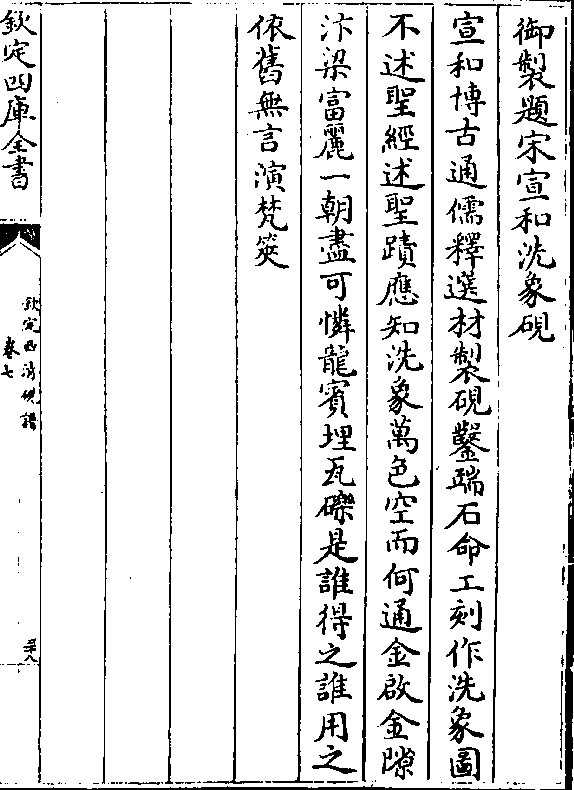 御製題宋宣和洗象硯
宣和博古通儒釋選材製硯鑿端石命工刻作洗象圖
不述聖經述聖蹟應知洗象萬色空而何通金啟金隙
汴梁富麗一朝盡可憐龍賓埋瓦礫是誰得之誰用之
依舊無言演梵筴
欽定四庫全書
欽定西清硯譜
卷七
三十八